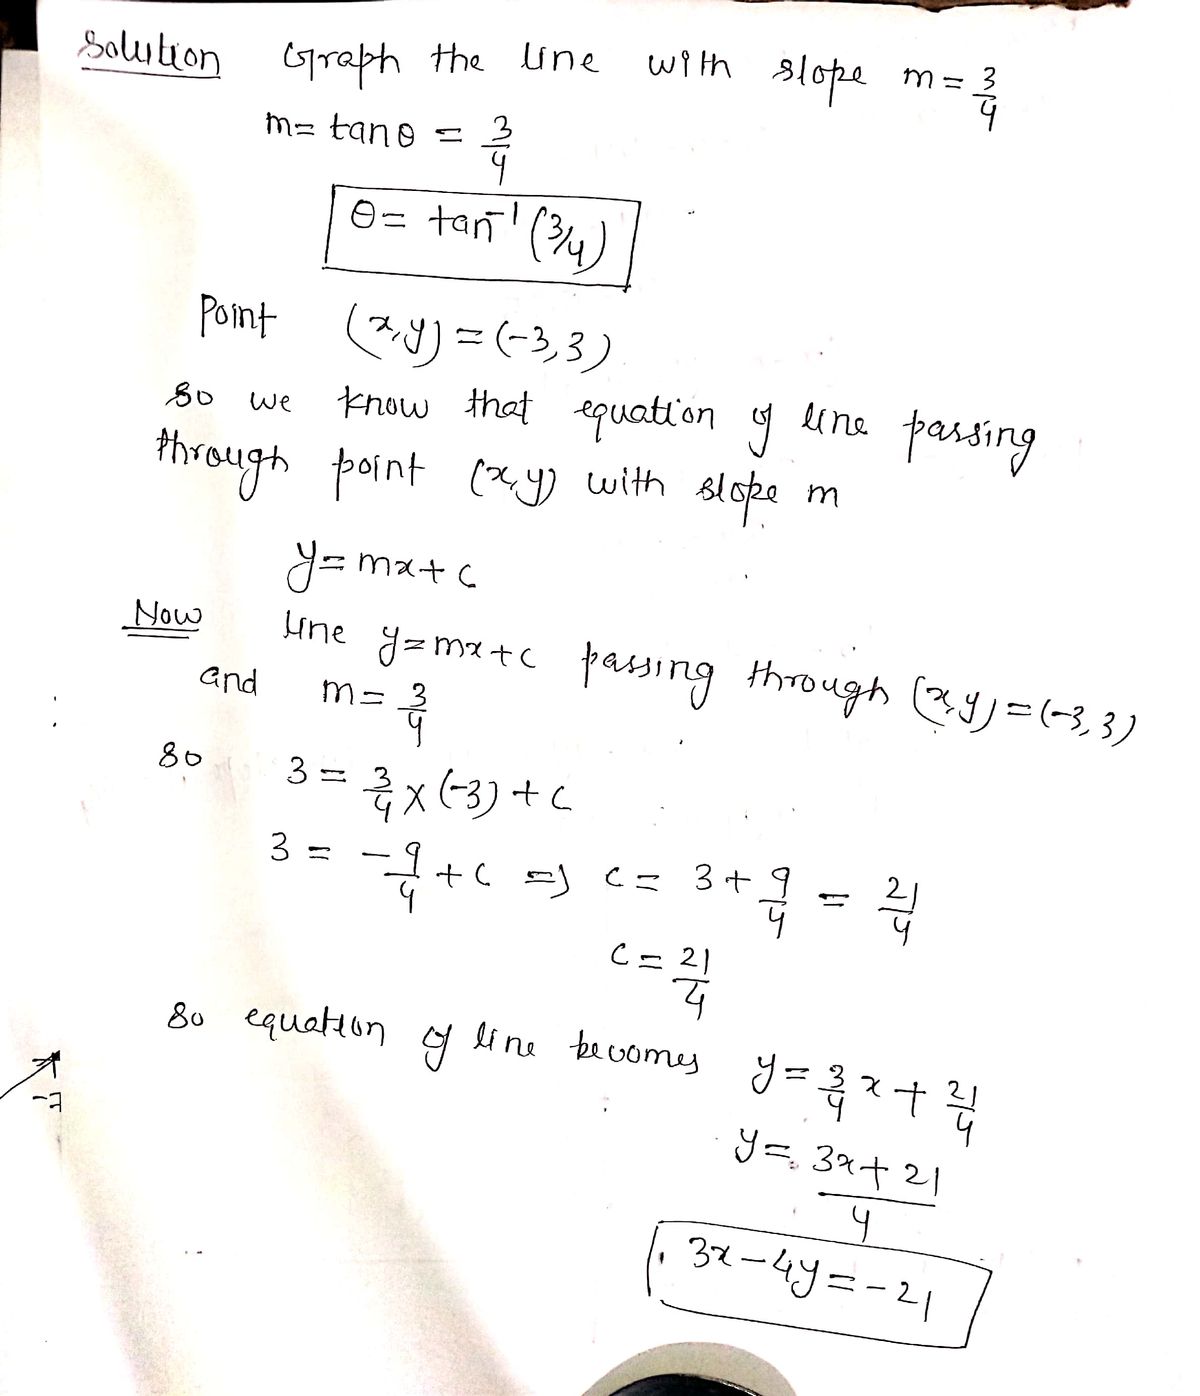 Solution Graph the line with slope m = 3/4
m = tan θ = 3/4
θ = tan⁻¹ (3/4)
Point (x, y) = (-3, 3)
So we know that equation of line passing
through point (x, y) with slope m
y = mx + c
Now line y = mx + c passing through (x, y) = (-3, 3)
and m = 3/4
So 3 = 3/4 × (-3) + c
3 = -9/4 + c ⇒ c = 3 + 9/4 = 21/4
c = 21/4
So equation of line becomes y = 3/4 x + 21/4
-7
y = 3x + 21 / 4
3x - 4y = -21